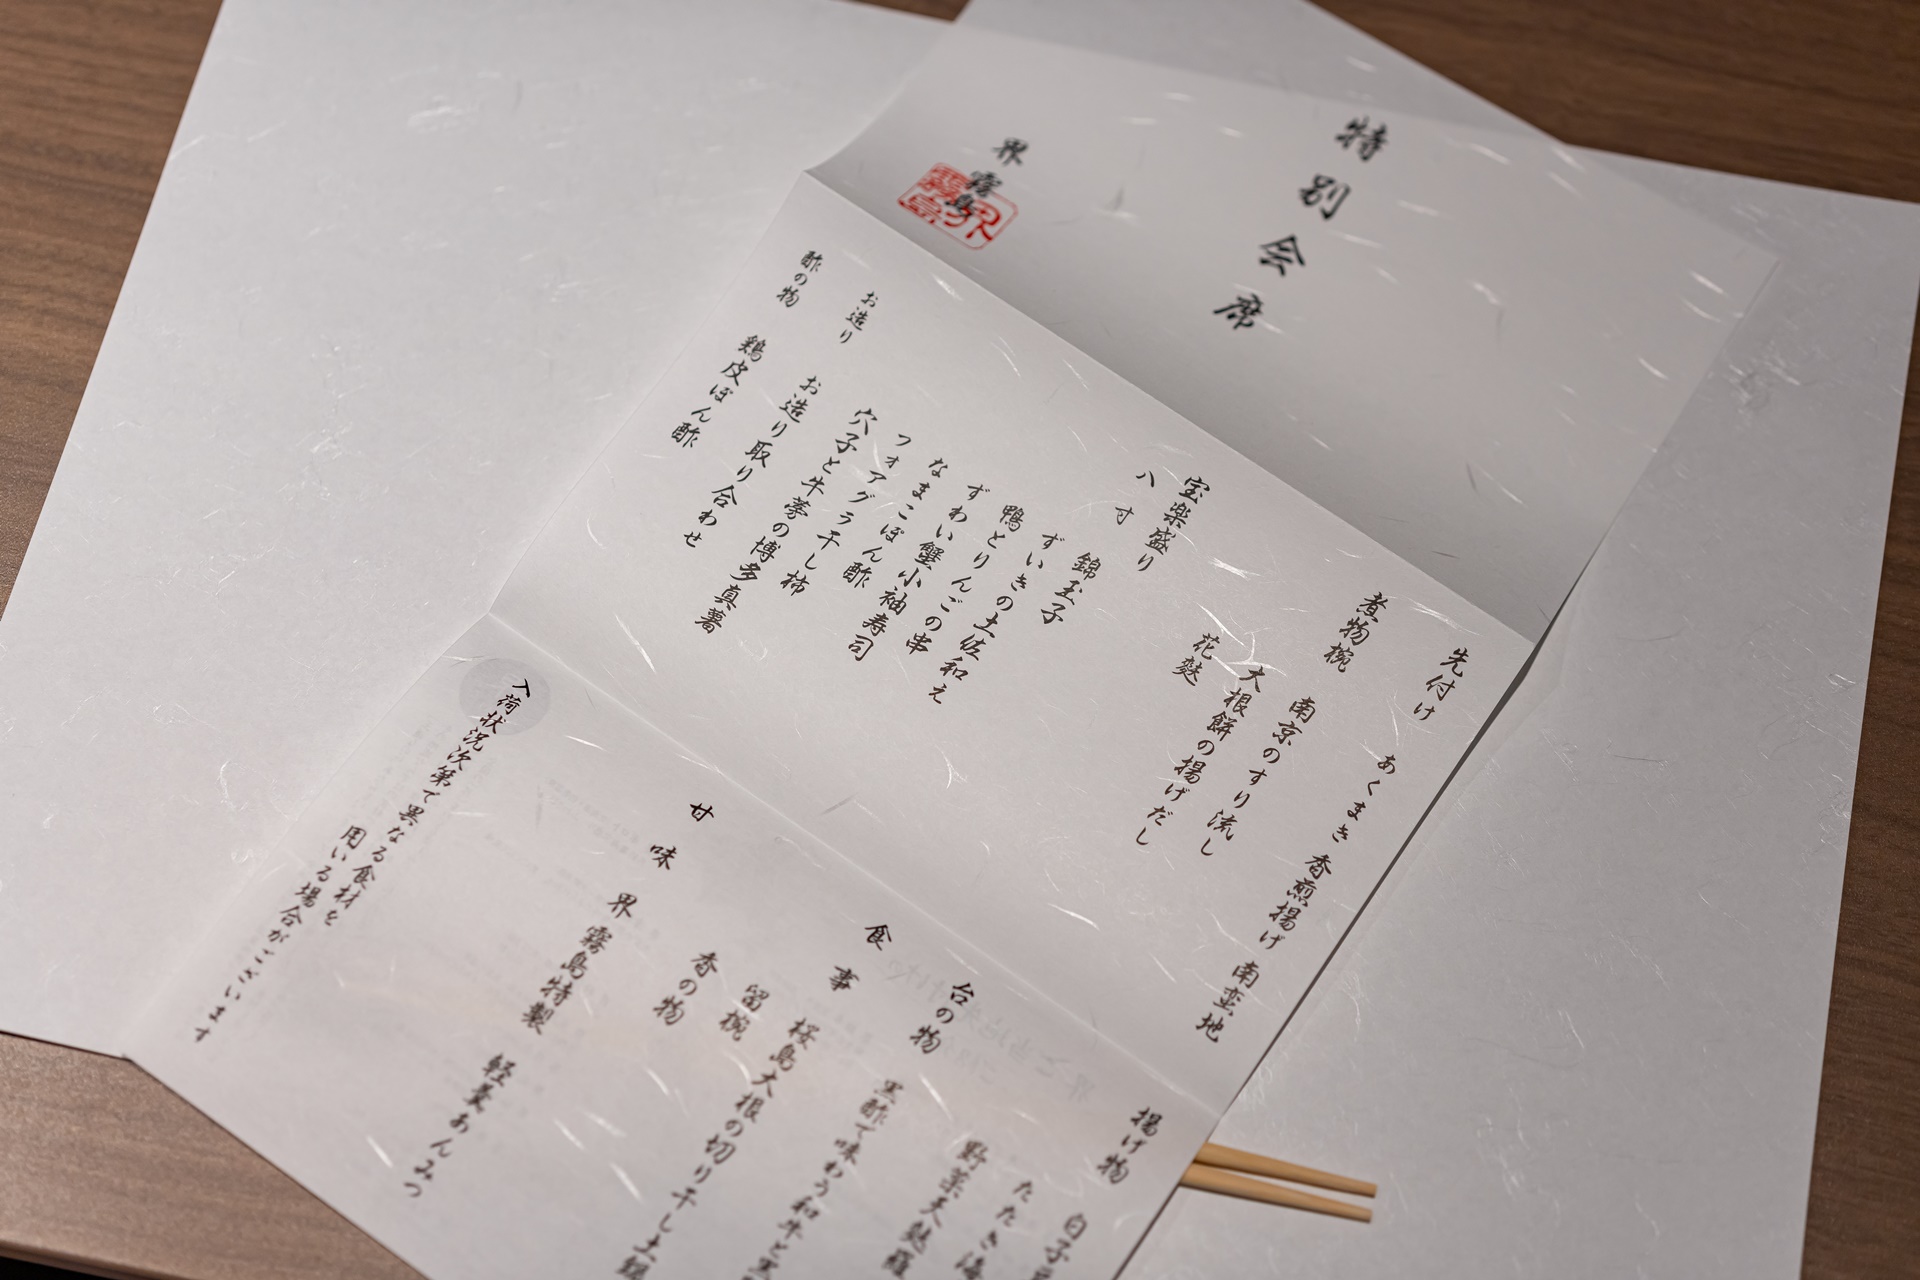 特別会席
界 霧島
界霧島
先付け
あくまき 香煎揚げ 南蛮地
煮物椀
南京のすり流し
大根餅の揚げだし
花麩
宝楽盛り
八寸
錦玉子
ずいきの土佐和え
鴨とりんごの串
ずわい蟹小袖寿司
なまこぽん酢
フォアグラ干し柿
穴子と牛蒡の博多真薯
お造り
お造り取り合わせ
酢の物
鶏皮ぽん酢
揚げ物
白子
たたき海
野菜天麩羅
台の物
黒酢で味わう和牛と黒
食事
桜島大根の切り干し土鍋
留椀
香の物
甘味
界 霧島特製 軽羹あんみつ
入荷状況次第で異なる食材を
用いる場合がございます